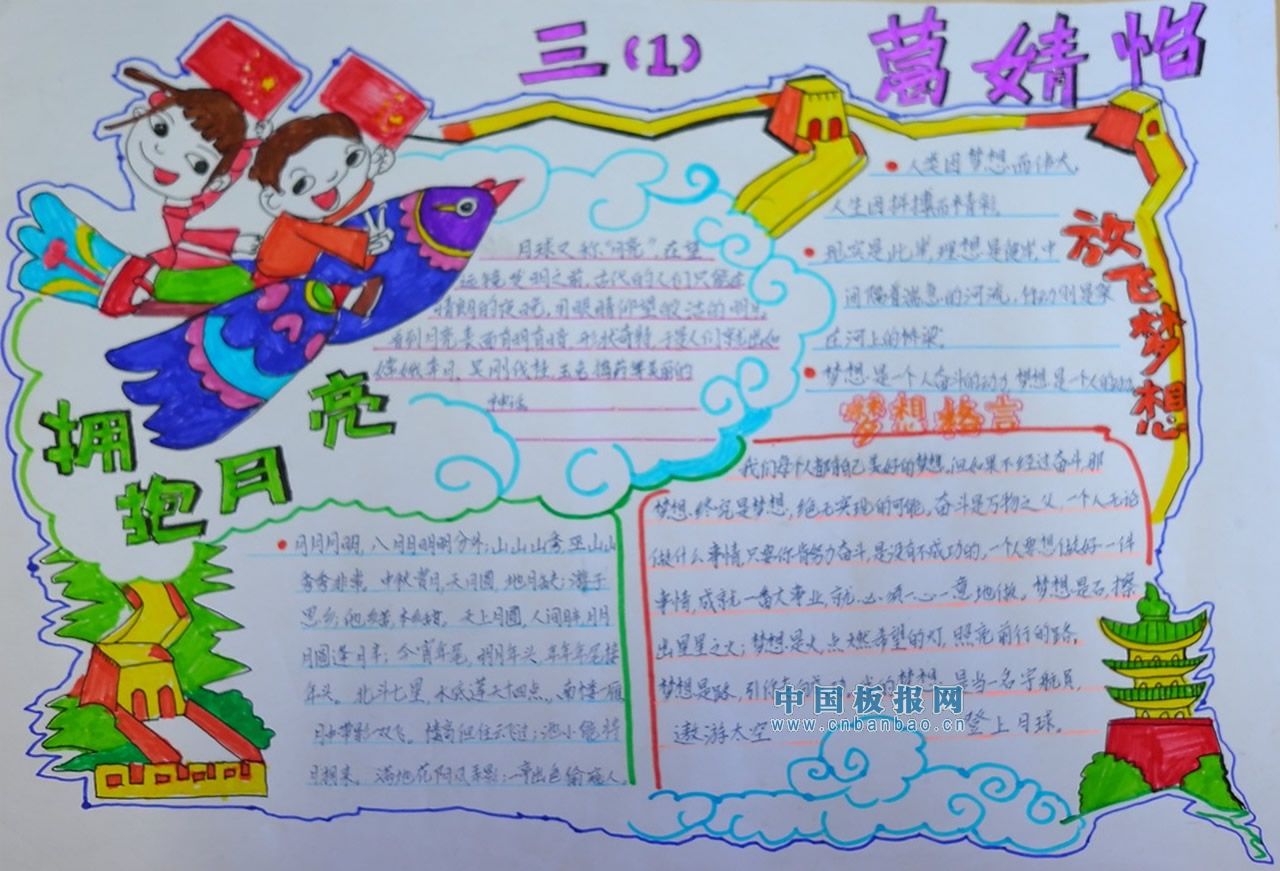 三(1)
葛婧怡
月球又称“月亮”,在望
远镜发明之前,古代的人们只能在
晴朗的夜晚,用眼睛仰望皎洁的明月。
看到月亮表面有明有暗,形状奇特,于是人们编出如
嫦娥奔月、吴刚伐桂、玉兔捣药等美丽的
神话
拥抱月亮
人类因梦想而伟大,
人生因拼搏而精彩。
现实是此岸,理想是彼岸中
间隔着湍急的河流,行动则是架
在河上的桥梁。
梦想是一个人奋斗的动力,梦想是一个人的动力
放飞梦想
梦想格言
我们每个人都有自己美好的梦想,但如果不经过奋斗,那
梦想终究是梦想,绝无实现的可能。奋斗是万物之父,一个人无论
做什么事情,只要你肯努力奋斗,是没有不成功的。一个人要想做好一件
事情,成就一番大事业,就必须一心一意地做。梦想是石,擦
出星星之火;梦想是火,点燃希望的灯,照亮前行的路。
梦想是路,引你走向 的梦想是当一名宇航员,
遨游太空 登上月球。
月月月明,八月月明明分外;山山山秀,巫山山
秀秀非常。中秋赏月,天月圆,地月缺;游子
思乡,他乡苦,本乡甜。天上月圆,人间月半,月月
月圆逢月半;今宵年尾,明月年头,年年年尾接
年头。北斗七星,水底连天十四点,南楼一雁,
月中带影一双飞。楼高但任云飞过;池小能将
月送来。满地花阴风弄影;一亭山色
中国板报网
www.cnbanbao.cn